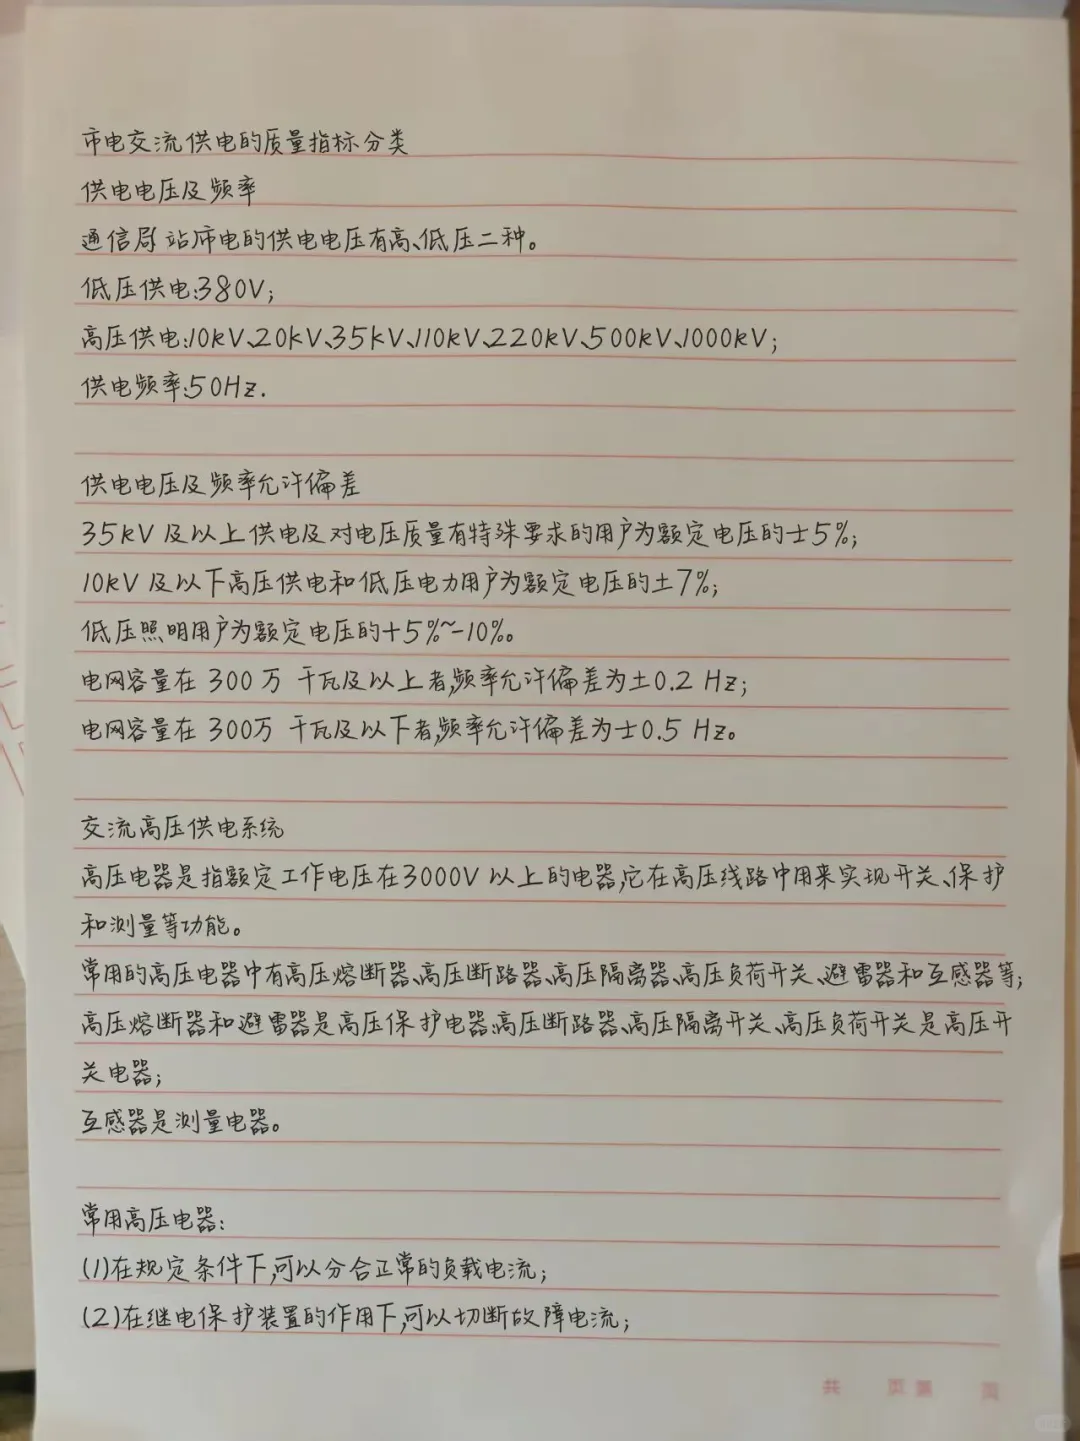 市电交流供电的质量指标分类
供电电压及频率
通信局站市电的供电电压有高、低压二种。
低压供电:380V;
高压供电:10kV、20kV、35kV、110kV、220kV、500kV、1000kV;
供电频率:50Hz.
供电电压及频率允许偏差
35kV 及以上供电及对电压质量有特殊要求的用户为额定电压的±5%;
10kV 及以下高压供电和低压电力用户为额定电压的±7%;
低压照明用户为额定电压的+5%~-10%。
电网容量在 300万 千瓦及以上者,频率允许偏差为±0.2 Hz;
电网容量在 300万 千瓦及以下者,频率允许偏差为±0.5 Hz。
交流高压供电系统
高压电器是指额定工作电压在3000V 以上的电器,它在高压线路中用来实现开关、保护
和测量等功能。
常用的高压电器中有高压熔断器、高压断路器、高压隔离器、高压负荷开关、避雷器和互感器等;
高压熔断器和避雷器是高压保护电器;高压断路器、高压隔离开关、高压负荷开关是高压开
关电器;
互感器是测量电器。
常用高压电器:
(1)在规定条件下,可以分合正常的负载电流;
(2)在继电保护装置的作用下,可以切断故障电流;
共 页 第 页